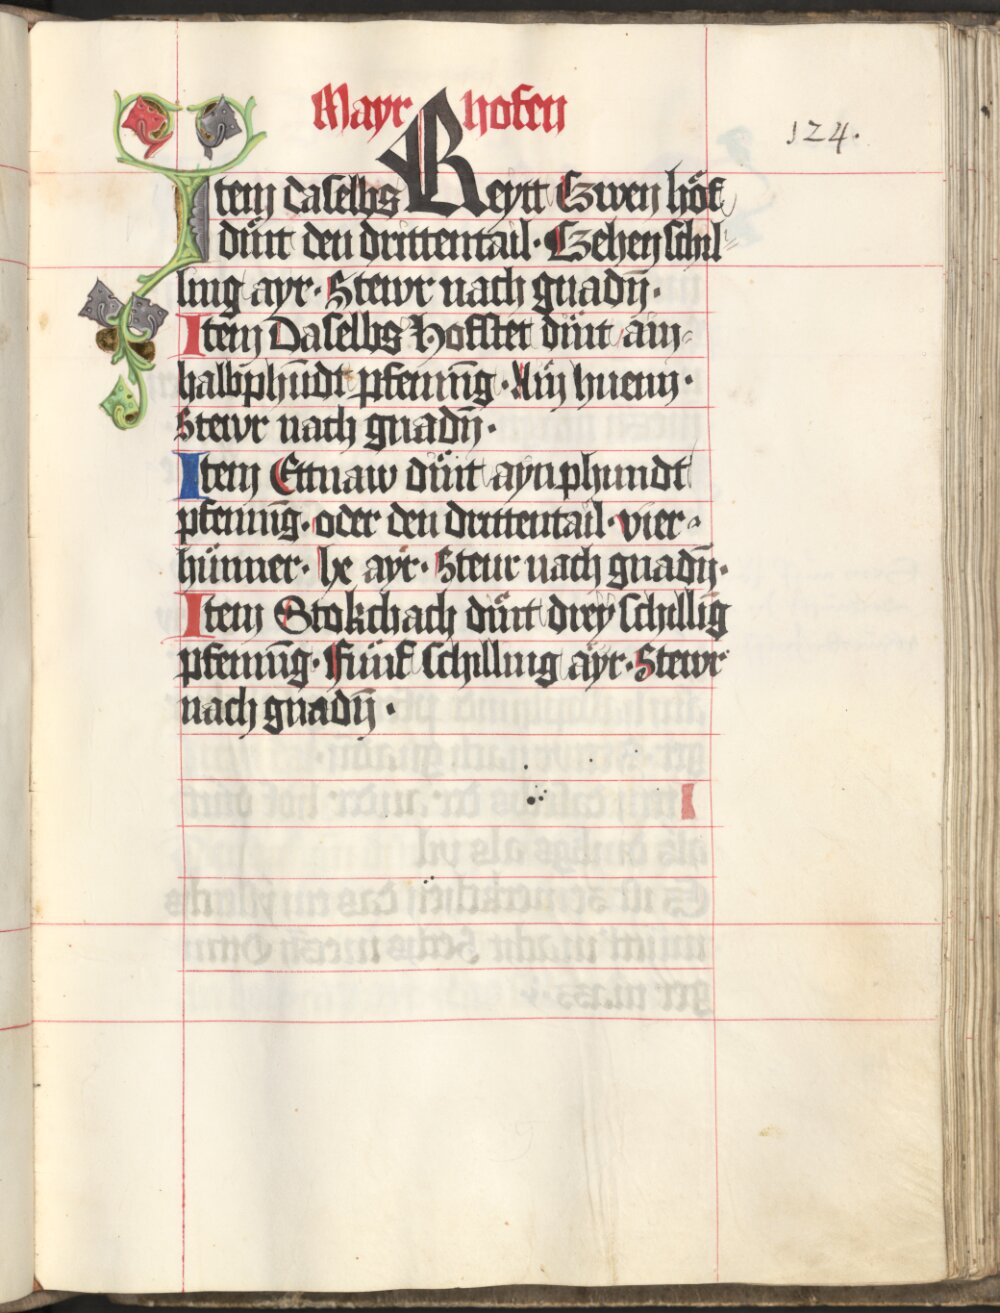 Mayr hofen
124.
Item daselbs Reytt Czwen höf
dint den drittentail · Czehen schil
ling ayr · Stewr nach gnadn̄ ·
Item Daselbs Hofstet dint ain
halbphūdt pfennīg · Ain huenn ·
Stewr nach gnadn̄ ·
Item Ettnaw dint aynphundt
pfennīg · oder den drittentail · vier
hünner · lx ayr · Steur nach gnadn̄ ·
Item Stokchach dint drey schillīg
pfennīg · Fünf schilling ayr · Stewr
nach gnadn̄ ·